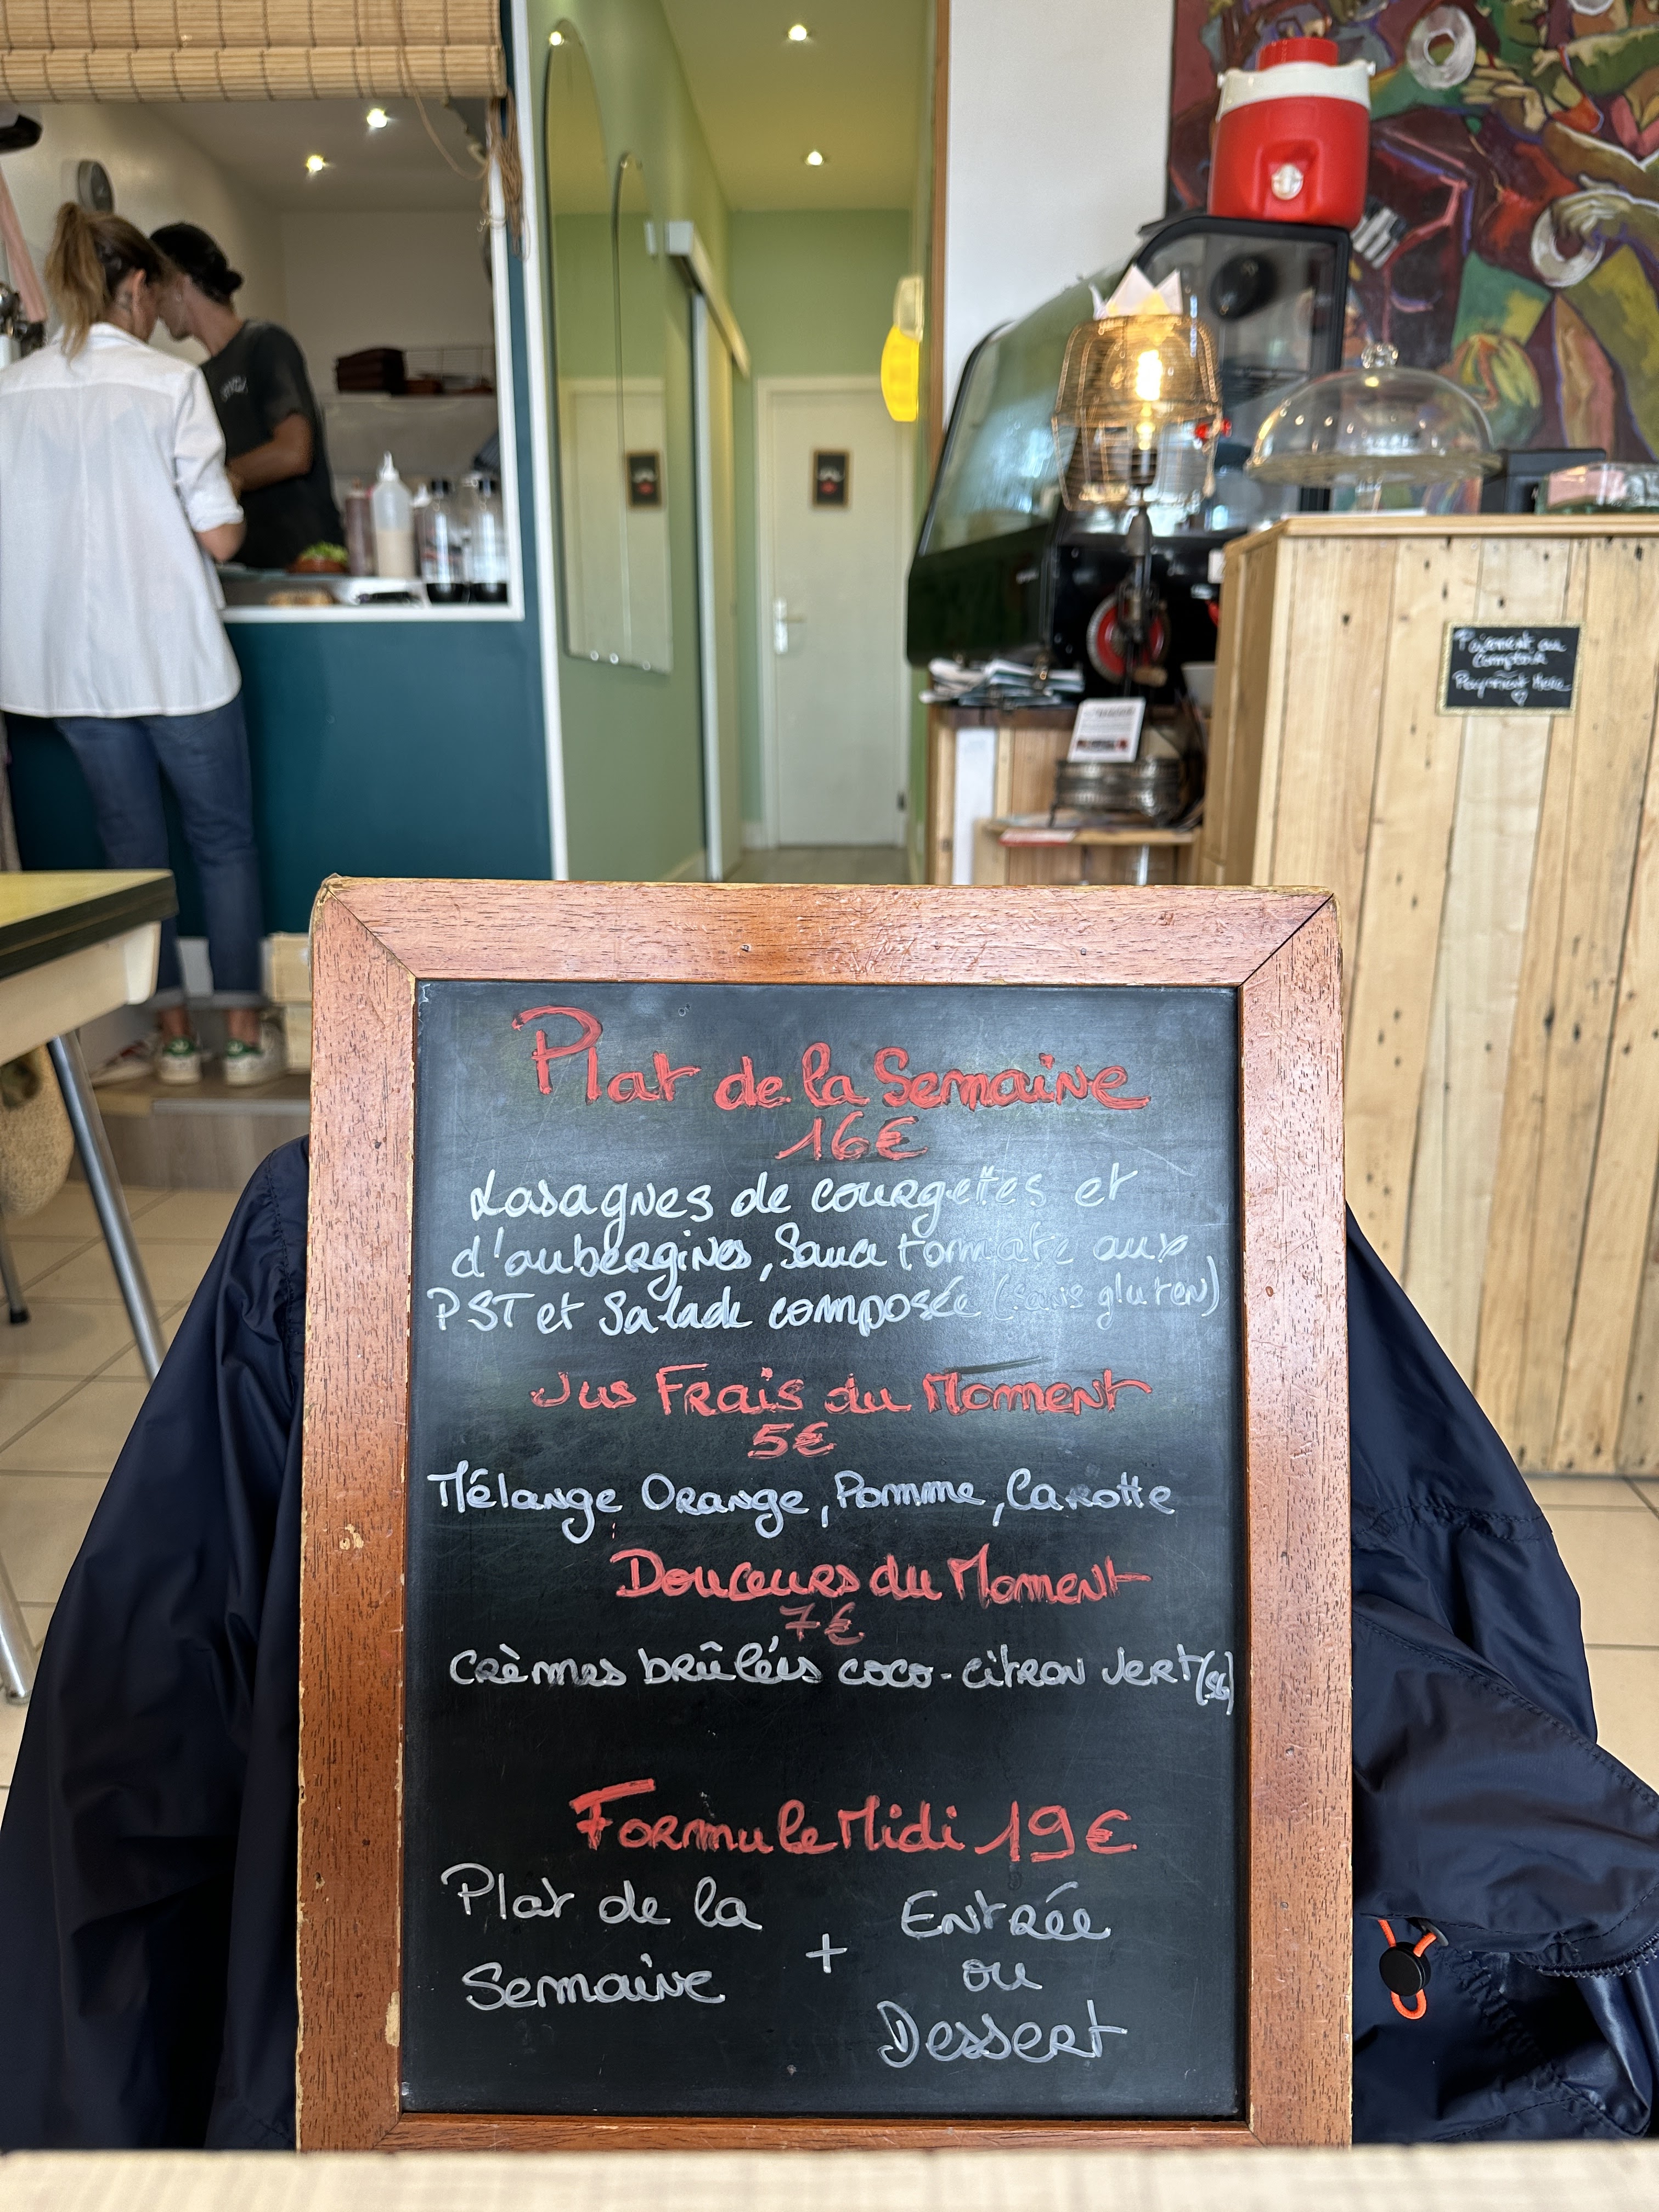 Paiement au
comptoir
Payment Here
Plat de la Semaine
16€
Lasagnes de courgettes et
d'aubergines, Sauce tomate aux
PST et Salade composée (sans gluten)
Jus Frais du Moment
5€
Mélange Orange, Pomme, Carotte
Douceurs du Moment
7€
Crèmes brûlées coco-citron vert (sg)
Formule Midi 19€
Plat de la
Semaine
+
Entrée
ou
Dessert